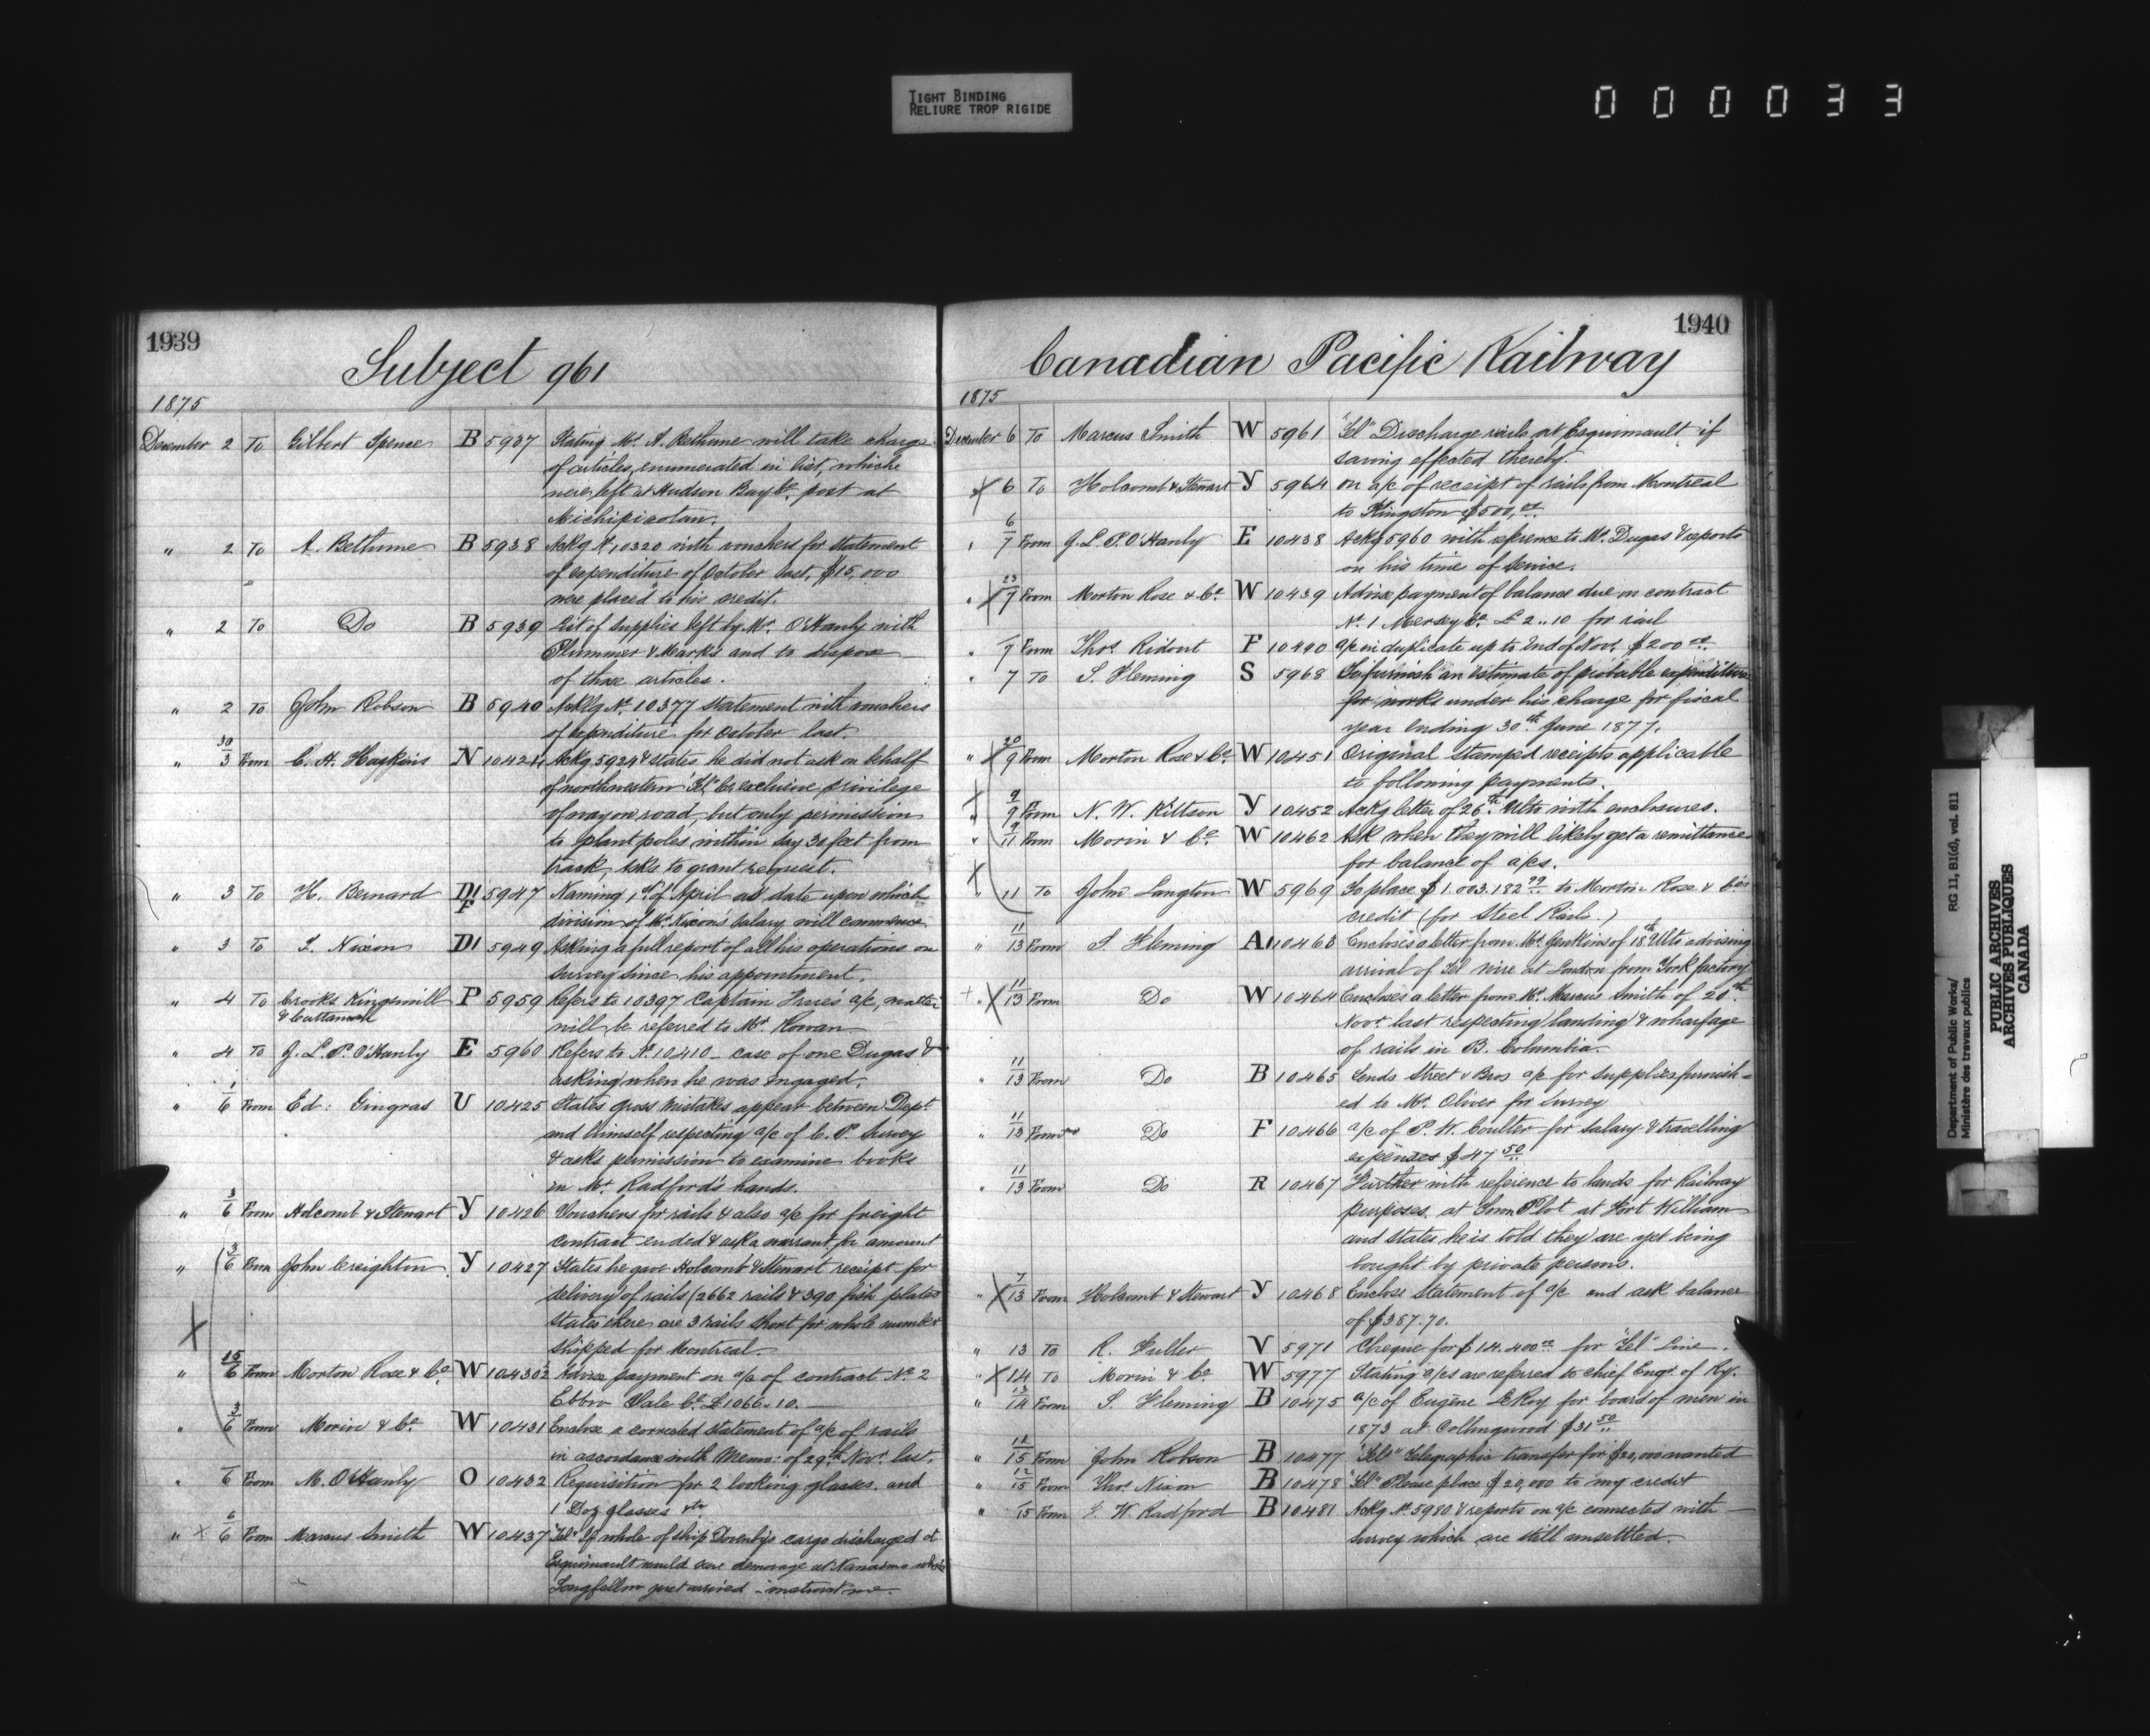 TIGHT BINDING
RELIURE TROP RIGIDE
000033
1939
Subject 961
1875
December 2 To Gilbert Spence B 5937 Stating Mr. A. Bethune will take charge
of articles, enumerated in list, which
were left at Hudson Bay Co. post at
Michipicotan.
" 2 To A. Bethune B 5938 Ackg No. 10320 with vouchers for statement
of expenditure of October last, $15,000
were placed to his credit.
" 2 To Do B 5939 List of supplies left by Mr. O'Hanly with
Plummer & Marks and to dispose
of those articles.
" 2 To John Robson B 5940 Ackg No. 10377 statement with vouchers
of expenditure for October last.
" 30/3 From C. H. Haskins N 10424 Ackg 5924 & states he did not ask on behalf
of northwestern Tel Co exclusive privilege
of way on road, but only permission
to plant poles within say 30 feet from
track, asks to grant request.
" 3 To H. Bernard D1 F 5947 Naming 1st of April as date upon which
division of Mr. Nixon's salary will commence
" 3 To T. Nixon D1 5949 Asking a full report of all his operations on
survey since his appointment.
" 4 To Crooks Kingsmill & Cattanach P 5959 Refers to 10397 Captain a/c, matter
will be referred to Mr. Rowan
" 4 To J. L. P. O'Hanly E 5960 Refers to No. 10410 - case of one Dugas &
asking when he was engaged.
" 1/6 From Ed: Gingras U 10425 States gross mistakes appear between Dept.
and himself respecting a/c of C. P. Survey
& asks permission to examine books
in Mr. Radford's hands.
" 3/6 From Holcomb & Stewart Y 10426 Vouchers for rails & also a/c for freight
contract ended & ask a warrant for amount
" 3/6 From John Creighton Y 10427 States he gave Holcomb & Stewart receipt for
delivery of rails (2662 rails & 390 fish plates
states there are 3 rails short for whole number
shipped for Montreal.
X
" 15/6 From Morton Rose & Co. W 10430½ Advise payment on a/c of contract No. 2
Ebbw Vale Co. £1066.10.
" 3/6 From Morin & Co. W 10431 Enclose a corrected statement of a/c of rails
in accordance with Memo: of 29th Nov. last.
" 6 From M. O'Hanly O 10432 Requisition for 2 looking glasses, and
1 Doz glasses &c
" X 6/6 From Marcus Smith W 10437 "Tel" If whole of ship cargo discharged at
Esquimault would save demorage at Nanaimo
Longfellow just arrived - instruct me.
1940
Canadian Pacific Railway
1875
December 6 To Marcus Smith W 5961 "Tel" Discharge rails at Esquimault if
saving effected thereby.
X 6 To Holcomb & Stewart Y 5964 on a/c of receipt of rails from Montreal
to Kingston $500,00
" 6/7 From J. L. P. O'Hanly E 10438 Ackg 5960 with reference to Mr. Dugas & reports
on his time of service.
" X 23/7 From Morton Rose & Co. W 10439 Advise payment of balance due on contract
No. 1 Mersey Co. £2..10 for rail
" 7 From Thos. Ridout F 10440 a/c in duplicate up to end of Nov. $200 00
" 7 To S. Fleming S 5968 To furnish an estimate of probable expenditure
for works under his charge for fiscal
year ending 30th June 1877.
" X 20/9 From Morton Rose & Co. W 10451 Original stamped receipts applicable
to following payments.
X " 9/9 From N. W. Kittson Y 10452 Ackg letter of 26th Ulto with enclosures.
" 9/11 From Morin & Co. W 10462 Ask when they will likely get a remittance
for balance of a/cs.
X " 11 To John Langton W 5969 To place $1.003.182 99 to Morton Rose & Co's
credit (for Steel Rails.)
" 11/13 From S. Fleming A1 10463 Encloses a letter from Mr. Jenkins of 18th Ulto advising
arrival of Tel wire at London from York factory
+ " X 11/13 From Do W 10464 Encloses a letter from Mr. Marcus Smith of 20th
Novr. last respecting landing & wharfage
of rails in B. Columbia.
" 11/13 From Do B 10465 Sends Street & Bros a/c for supplies furnish-
ed to Mr. Oliver for survey
" 11/13 From Do F 10466 a/c of P. W. Coulter for salary & travelling
expenses $47 50
" 11/13 From Do R 10467 Further with reference to lands for Railway
purposes at Town Plot at Fort William
and states he is told they are yet being
bought by private persons.
" X 7/13 From Holcomb & Stewart Y 10468 Enclose statement of a/c and ask balance
of $387.70.
" 13 To R. Fuller V 5971 Cheque for $14.400 00 for "Tel" Line.
" X 14 To Morin & Co. W 5977 Stating a/cs are referred to chief Engr. of Ry.
" 13/14 From S. Fleming B 10475 a/c of Eugène LeRoy for board of men in
1873 at Collingwood $31 50
" 12/15 From John Robson B 10477 "Tel" Telegraphic transfer for $20,000 wanted
" 12/15 From Thos. Nixon B 10478 "Tel" Please place $20,000 to my credit
" 15 From W. Radford B 10481 Ackg No. 5980 & reports on a/c connected with
survey which are still unsettled.
Department of Public Works/
Ministère des travaux publics
RG 11, B1(d), vol. 811
PUBLIC ARCHIVES
ARCHIVES PUBLIQUES
CANADA